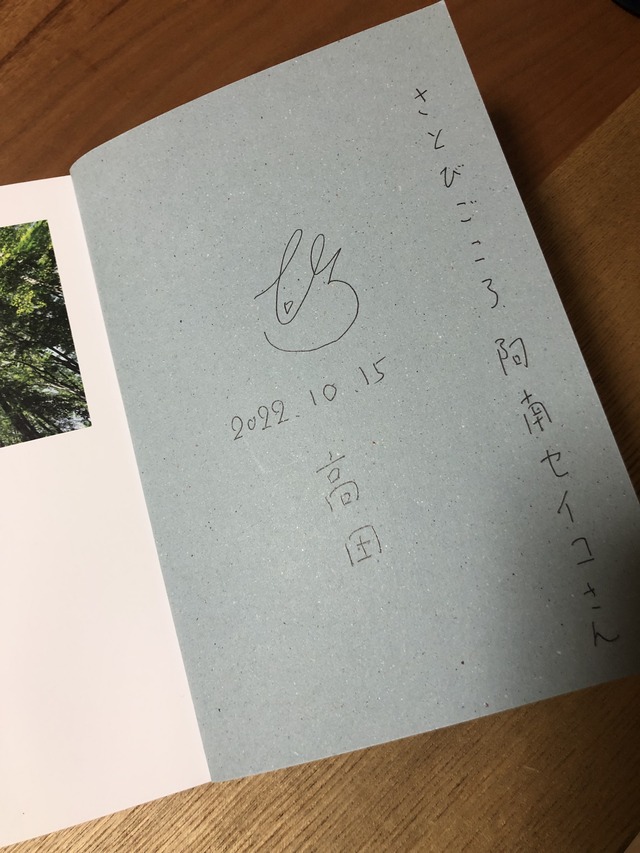 さとびごころ 阿南セイコさん
2022.10.15
高田